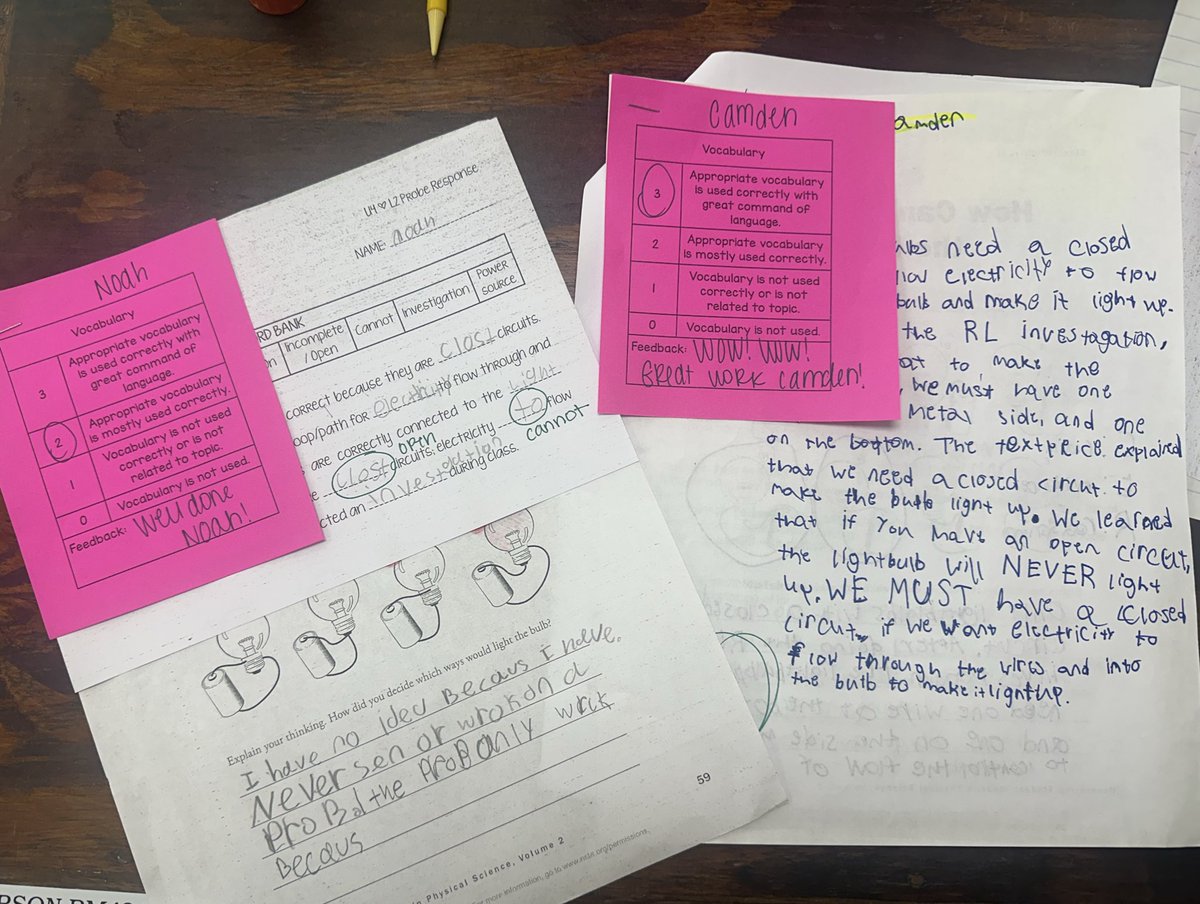 Noah
Vocabulary
3 Appropriate vocabulary is used correctly with great command of language.
2 Appropriate vocabulary is mostly used correctly.
1 Vocabulary is not used correctly or is not related to topic.
0 Vocabulary is not used.
Feedback: Well done
Noah!
U4 ♡ L2 Probe Response
NAME: noah
RD BANK
Incomplete / Open
Cannot
Investigation
Power source
correct because they are clost circuits.
oop/path for electricity to flow through and
are correctly connected to the light
clost open circuits, electricity to cannot flow
cted an investigation during class.
Explain your thinking. How did you decide which ways would light the bulb?
I have no idea Becaus I have.
Never sen or wrok on a
proBal the proBanly writ
Becaus
59
n Physical Science, Volume 2
more information, go to www.nsta.org/permissions.
Camden
Vocabulary
3 Appropriate vocabulary is used correctly with great command of language.
2 Appropriate vocabulary is mostly used correctly.
1 Vocabulary is not used correctly or is not related to topic.
0 Vocabulary is not used.
Feedback: WOW! WOW!
Great work Camden!
amden
lbs need a closed
low electricity to flow
bulb and make it light up.
the RL investagation,
at to make the
, we must have one
metal side, and one
on the bottom. The text price explained
that we need a closed circut to
make the bulb light up. We learned
that if you have an open circut,
the lightbulb will NEVER light
up. WE MUST have a closed
circut if we want electricity to
flow through the wires and into
the bulb to make it light up.